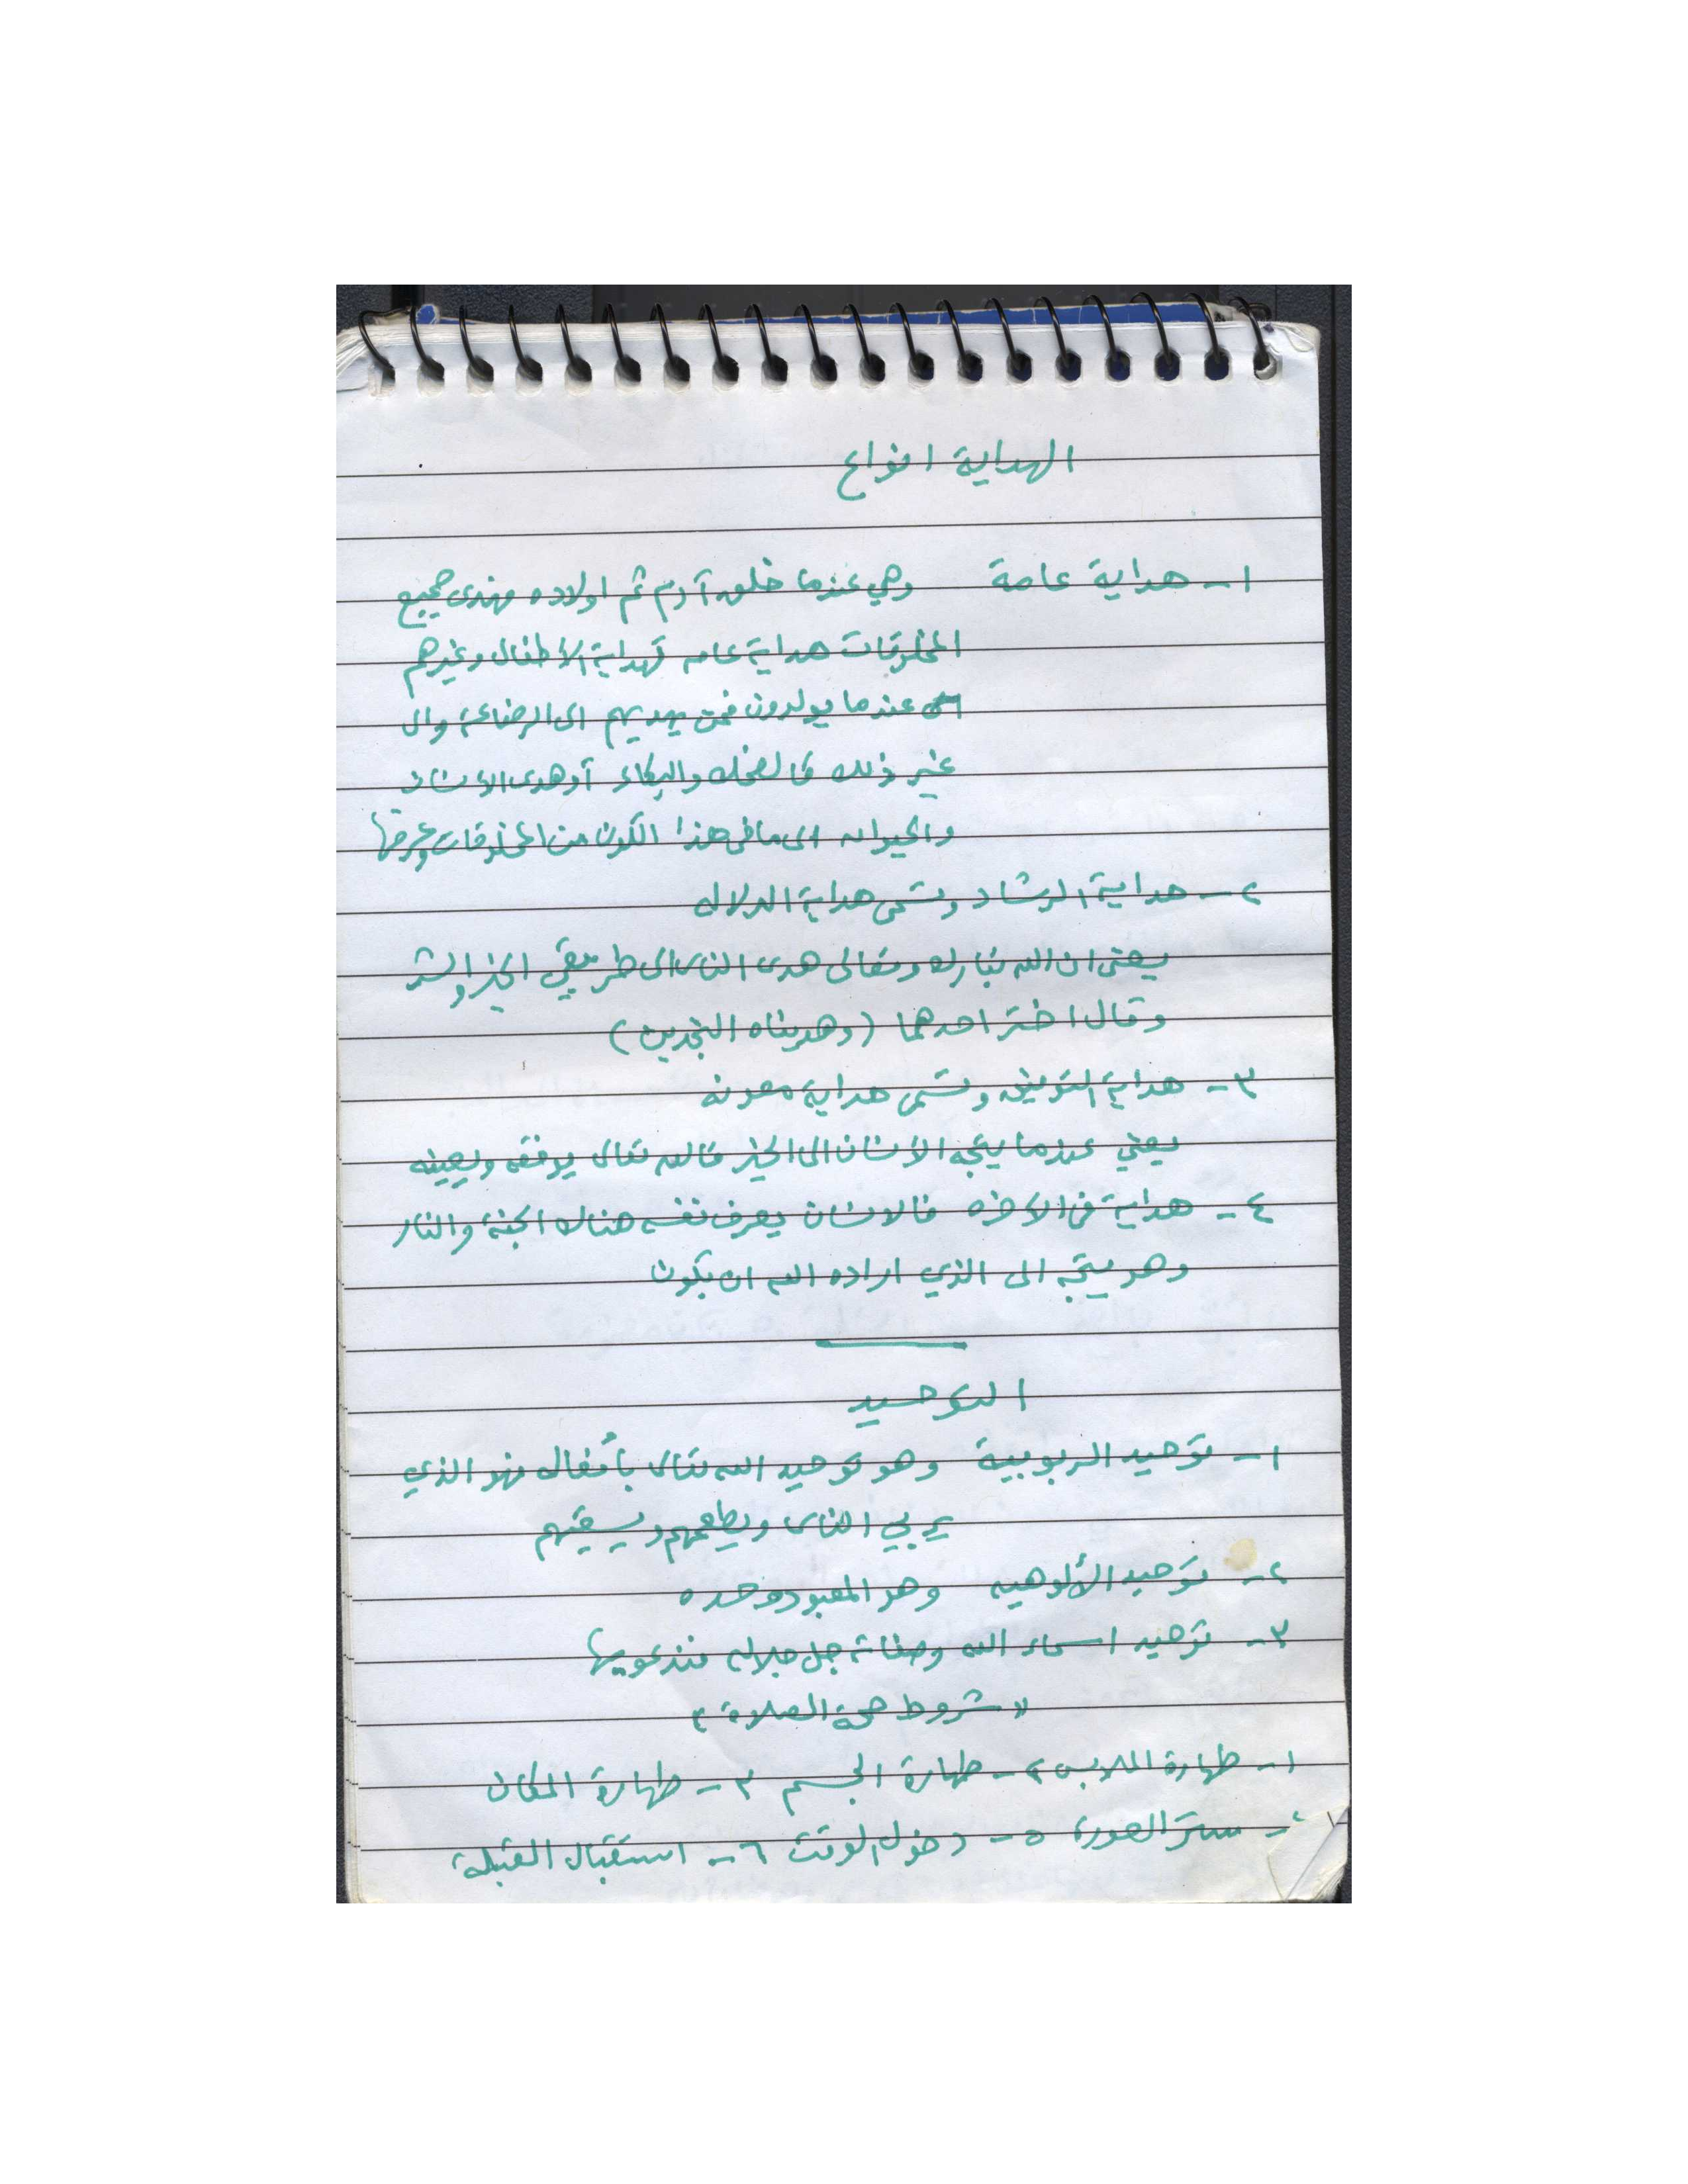 الهداية انواع
١- هداية عامة وهي عندما خلق آدم ثم اولاده فهدى جميع
المخلوقات هداية عامه كهداية الاطفال وغيرهم
عندما يولدون فمن يهديهم الى الرضاعة والى
غير ذلك كالضحك والبكاء أو هدى الانسان
والحيوان الى ما فى هذا الكون من المخلوقات وعرفها
٢- هداية الرشاد وتسمى هداية الدلاله
يعنى ان الله تبارك وتعالى هدى الناس الى طريقي الخير والشر
وقال اختر احدهما (وهديناه النجدين)
٣- هداية التوفيق وتسمى هداية معونه
يعني عندما يتجه الانسان الى الخير فالله تعالى يوفقه ويعينه
٤- هداية فى الاخره فالانسان يعرف نفسه هناك الجنة والنار
وهو يتجه الى الذي اراده الله ان يكون
التوحيد
١- توحيد الربوبية وهو توحيد الله تعالى بأفعاله فهو الذي
يربي الناس ويطعمهم ويسقيهم
٢- توحيد الألوهيه وهو المعبود وحده
٣- توحيد اسماء الله وصفاته جل جلاله فندعو بها
(شروط صحة الصلاة)
١- طهارة الملابس ٢- طهارة الجسم ٣- طهارة المكان
٤- ستر العورة ٥- دخول الوقت ٦- استقبال القبلة